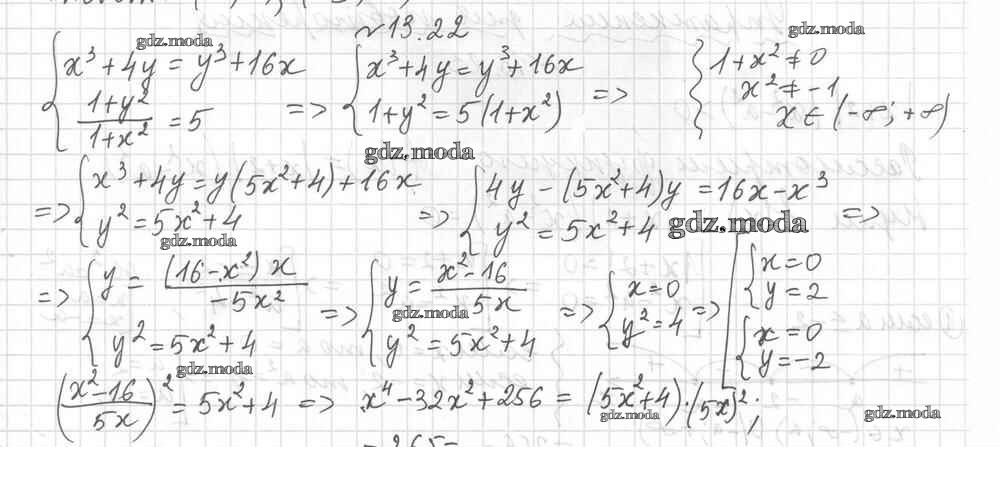 №13.22
{x³+4y=y³+16x
{(1+y²)/(1+x²)=5 => {x³+4y=y³+16x
{1+y²=5(1+x²) => {1+x²≠0
x²≠-1
x∈(-∞;+∞)
gdz.moda
gdz.moda
gdz.moda
gdz.moda
=> {x³+4y=y(5x²+4)+16x
{y²=5x²+4 => {4y-(5x²+4)y=16x-x³
{y²=5x²+4 =>
gdz.moda
gdz.moda
=> {y=((16-x²)x)/(-5x²)
{y²=5x²+4 => {y=(x²-16)/(5x)
{y²=5x²+4 => {x=0
{y²=4 => [{x=0
{y=2
{x=0
{y=-2
gdz.moda
gdz.moda
((x²-16)/(5x))²=5x²+4 => x⁴-32x²+256=(5x²+4)·(5x)²;
gdz.moda
gdz.moda